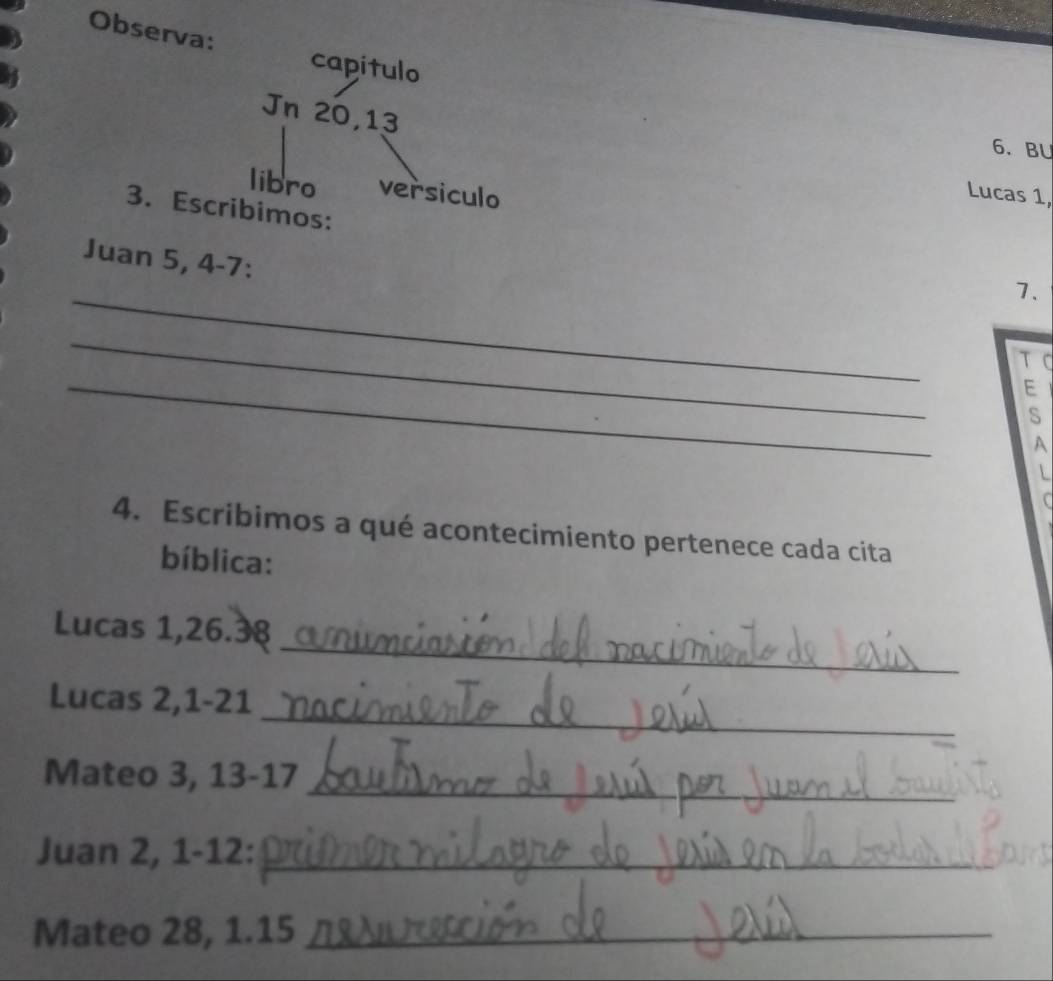 Observa:
capitulo
Jn 20,13
libro versiculo
3. Escribimos:
Juan 5, 4-7:
4. Escribimos a qué acontecimiento pertenece cada cita
bíblica:
Lucas 1,26.38 anunciación del nacimiento de Jesús
Lucas 2,1-21 nacimiento de Jesús
Mateo 3, 13-17 bautismo de Jesús por Juan el bautista
Juan 2, 1-12: primer milagro de Jesús en la bodas
Mateo 28, 1.15 resurección de Jesús
6. BU
Lucas 1,
7.
T C
E
S
A
L